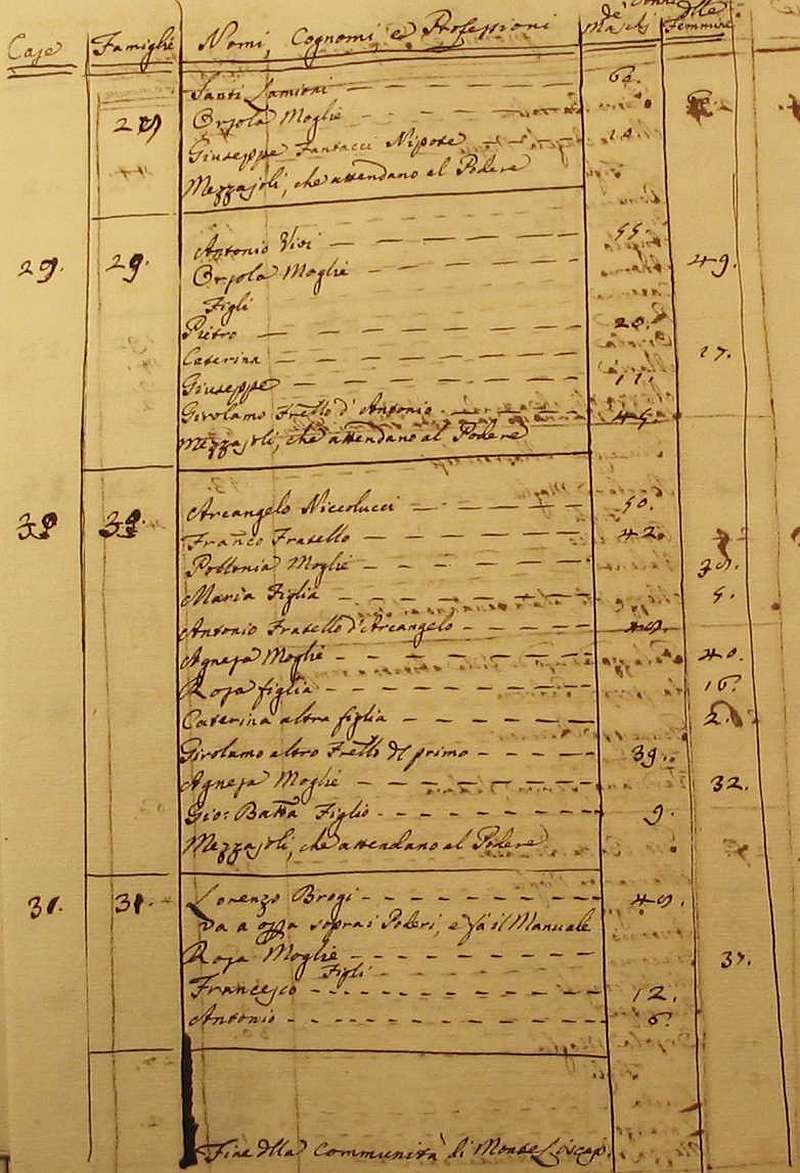 Case Famiglie Nomi, Cognomi e Professioni de Maschi dlle Femmine
Santi Lamioni 60.
28 Orsola Moglie 60.
Giuseppe Fantacci Nipote
Mezzajoli, che attendano al Podere
Antonio Vivi 55.
29. 29. Orsola Moglie 49.
Figli
Pietro 20.
Caterina 17.
Giuseppe 11.
Girolamo Frello d'Antonio 45.
Mezzajoli, che attendano al Podere
Arcangelo Niccolucci 50.
30. 30. Franco Fratello 42.
Pollonia Moglie
Maria Figlia 5.
Antonio Fratello d'Arcangelo
Agnesa Moglie 40.
Rosa figlia 16.
Caterina altra figlia 2.
Girolamo altro Frello del primo 39.
Agnesa Moglie 32.
Gio: Batta Figlio 9.
Mezzajoli, che attendano al Podere
31. 31. Lorenzo Brogi
Va a opra sopra i Poderi, e fà il Manuale
Rosa Moglie 37.
Figli
Francesco 12.
Antonio 6.
Fine dlla Communità di Monte